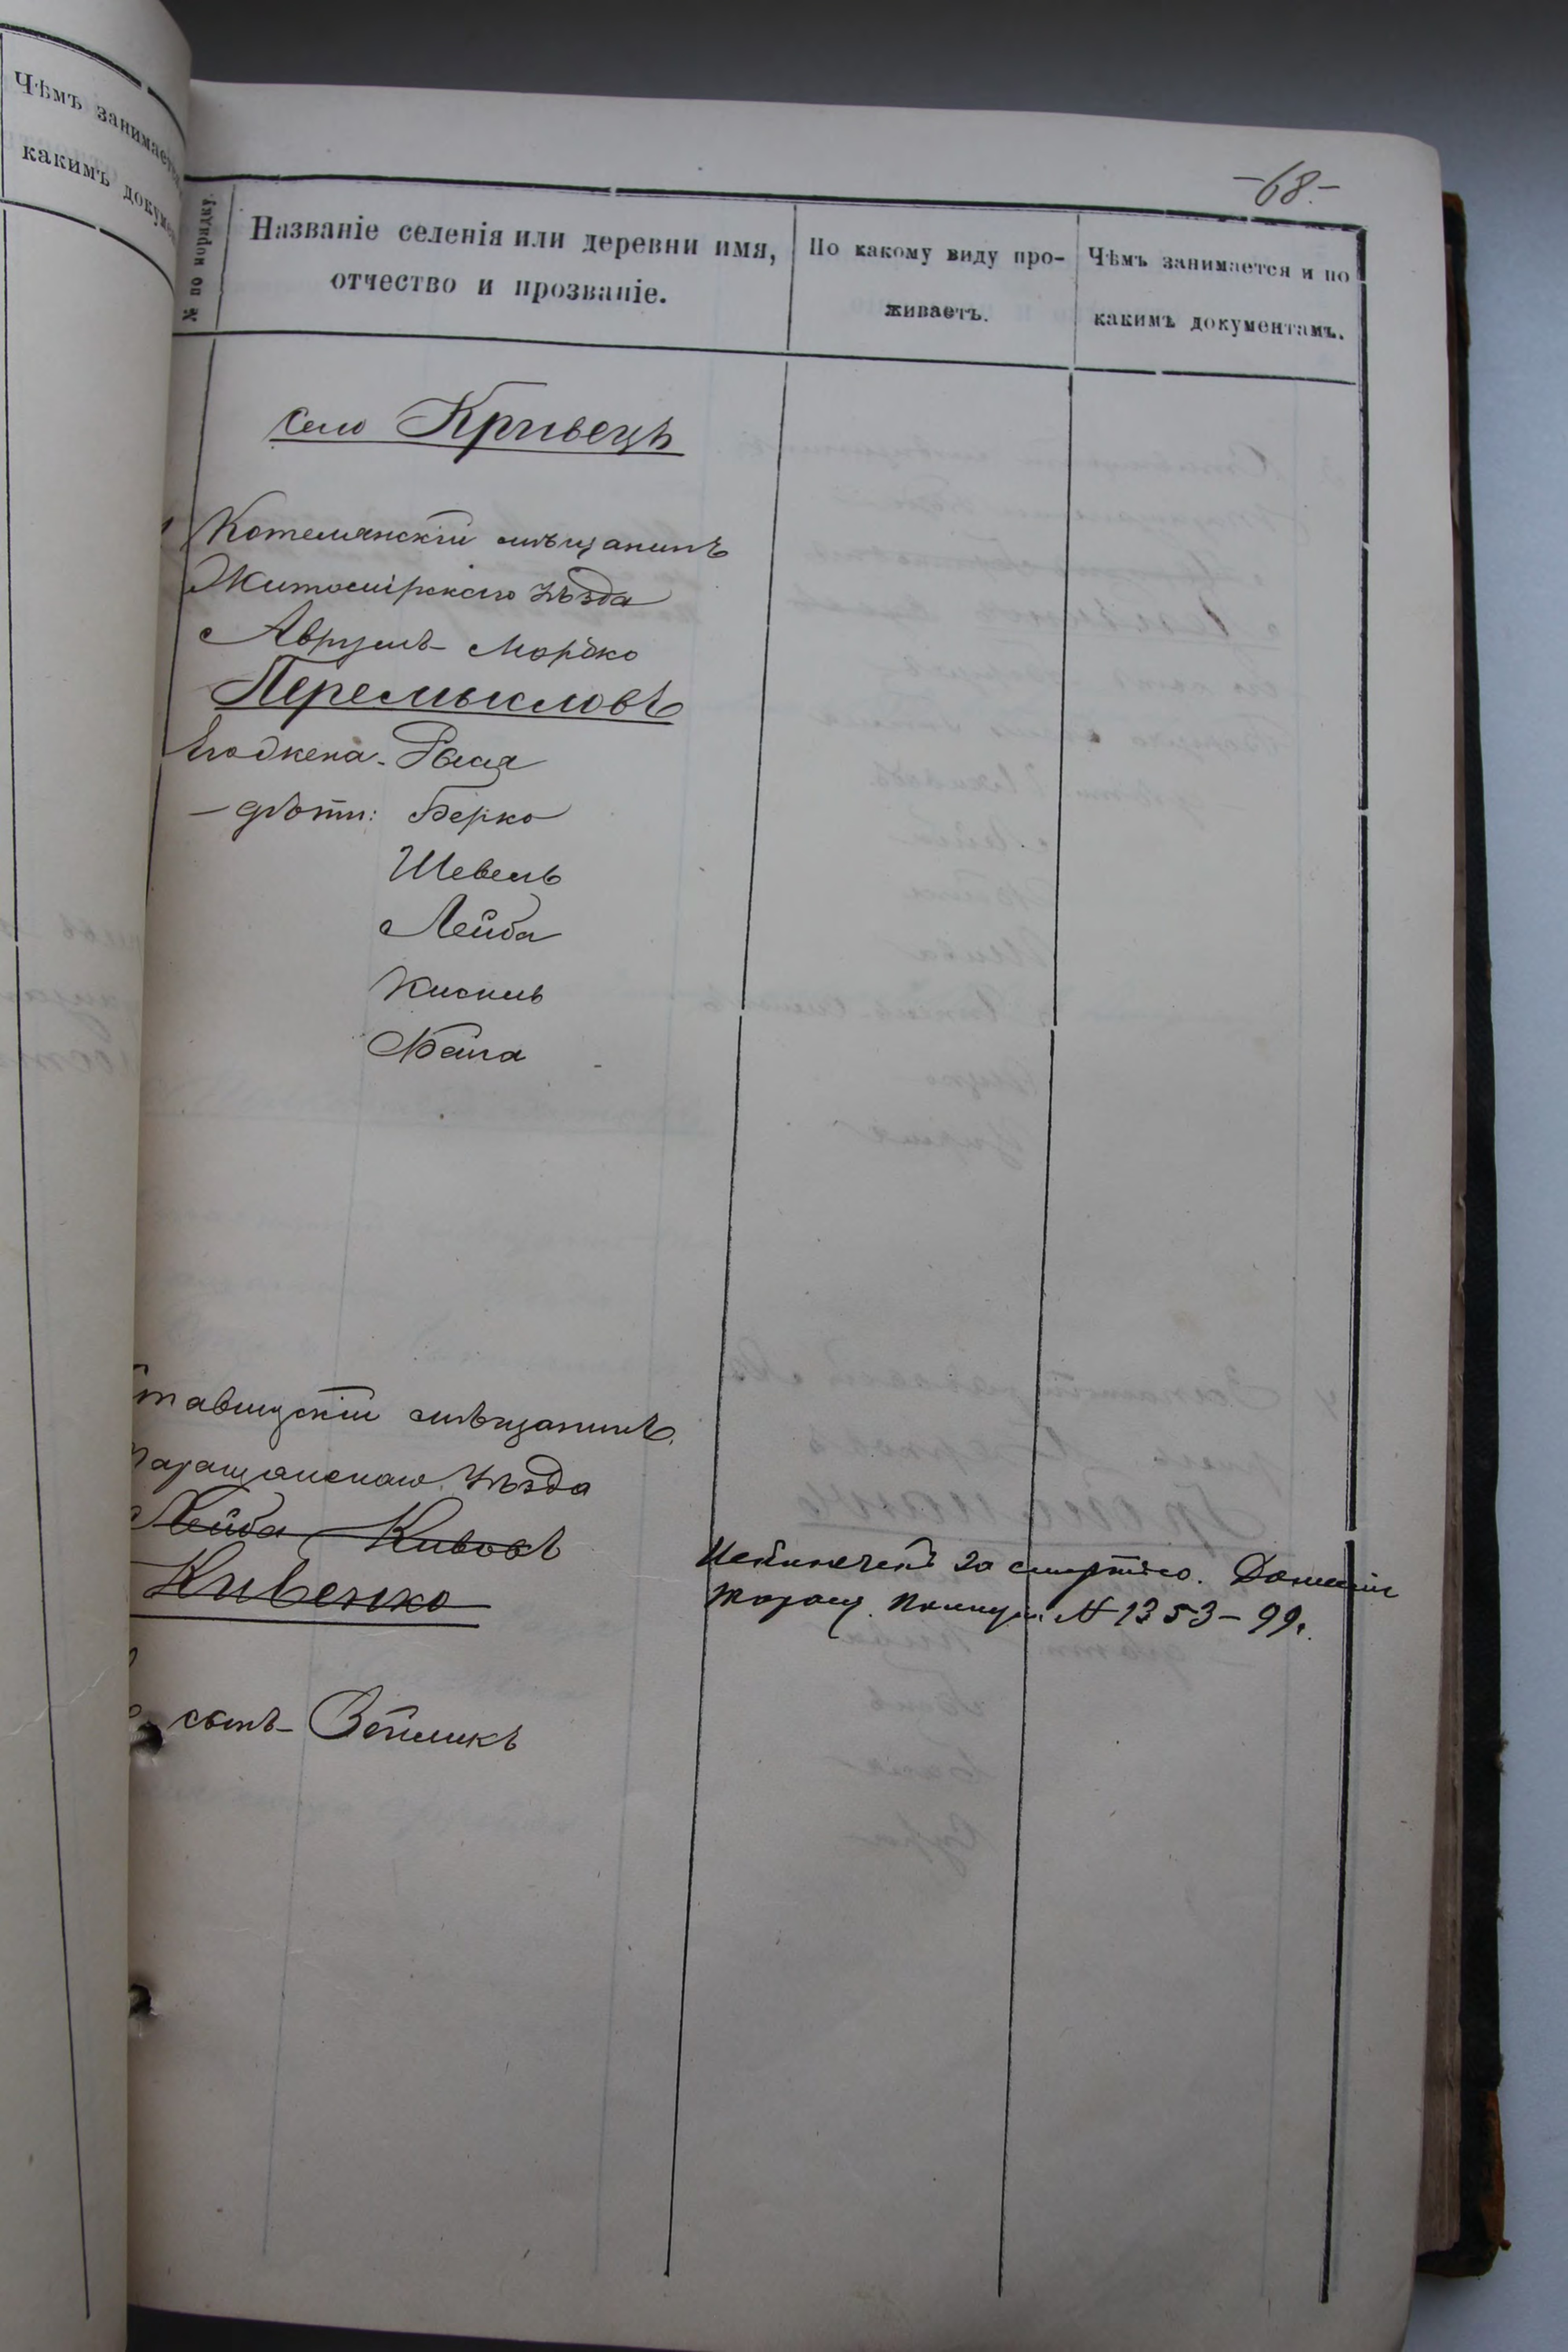 Чѣмъ занимается
какимъ докумен
-68.-
№ по порядку.
Названіе селенія или деревни имя,
отчество и прозваніе.
По какому виду про-
живаетъ.
Чѣмъ занимается и по
какимъ документамъ.
Село Кривецъ
1 Котелянскій мѣщанинъ
Житомірскаго Уѣзда
Аврумъ-Мордко
Перемысловъ
Его жена-Рася
- дѣти: Берко
Шевель
Лейба
Кисиль
Бейла
тавищскій мѣщанинъ
Таращанскаго Уѣзда
Лейба Кивовъ
Кивенко
сынъ- Зейликъ
Исключенъ за смертію.
Таращ. Полиціи № 1353-99.